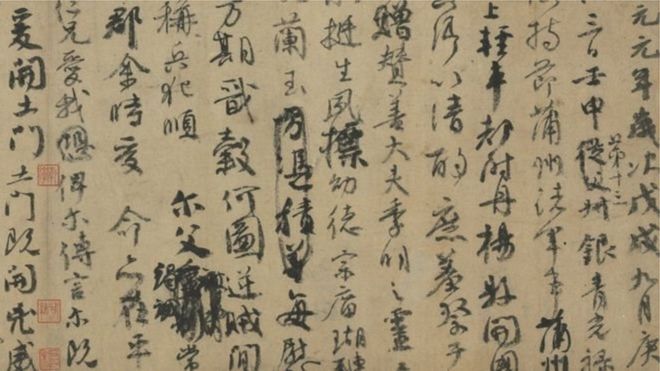 元元年歲次戊戌九月庚
三日壬申
第十三
從父叔銀青光祿
持節蒲州諸軍事蒲州
上輕車都尉丹楊縣開國
以清酌庶羞祭于
贈贊善大夫季明之靈
挺生夙標幼德宗廟瑚璉
蘭玉方憑積善每慰
方期戩穀何圖逆賊間
稱兵犯順爾父竭誠常
郡余時受命亦在平
仁兄愛我俾爾傳言爾既
爰開土門土門既開凶威